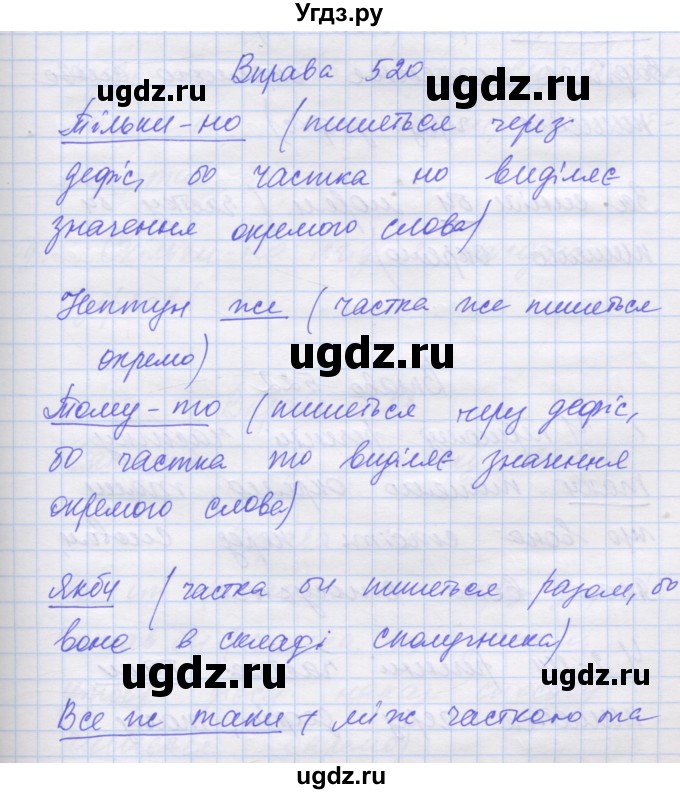 Угдз.ру
Вправа 520
Тільки-но (пишеться через
дефіс, бо частка но виділяє
значення окремого слова)
Нептун же (частка же пишеться
окремо)
Тому-то (пишеться через дефіс,
бо частка то виділяє значення
окремого слова)
Якби (частка би пишеться разом, бо
вона в складі сполучника)
Все ж таки + між часткою та
ugdz.ru
ugdz.ru
ugdz.ru
ugdz.ru
ugdz.ru
ugdz.ru
ugdz.ru